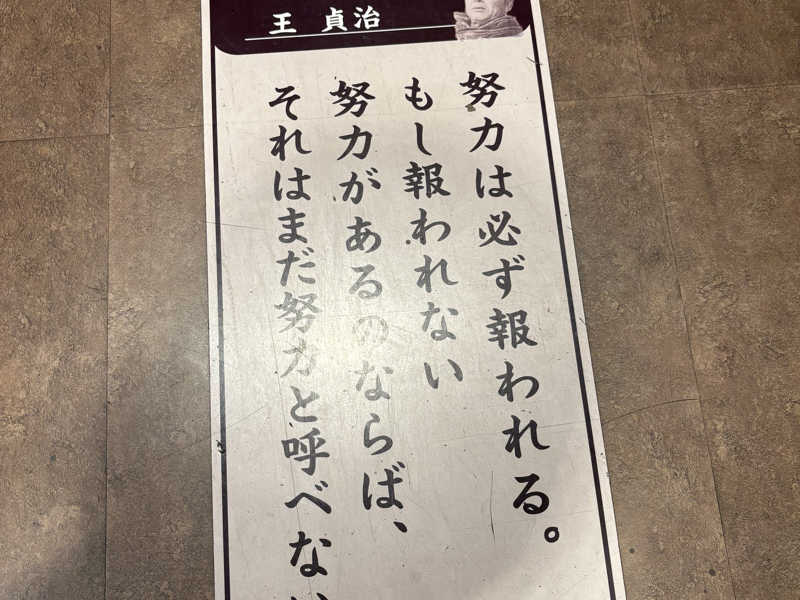 王 貞治
努力は必ず報われる。
もし報われない
努力があるのならば、
それはまだ努力と呼べない